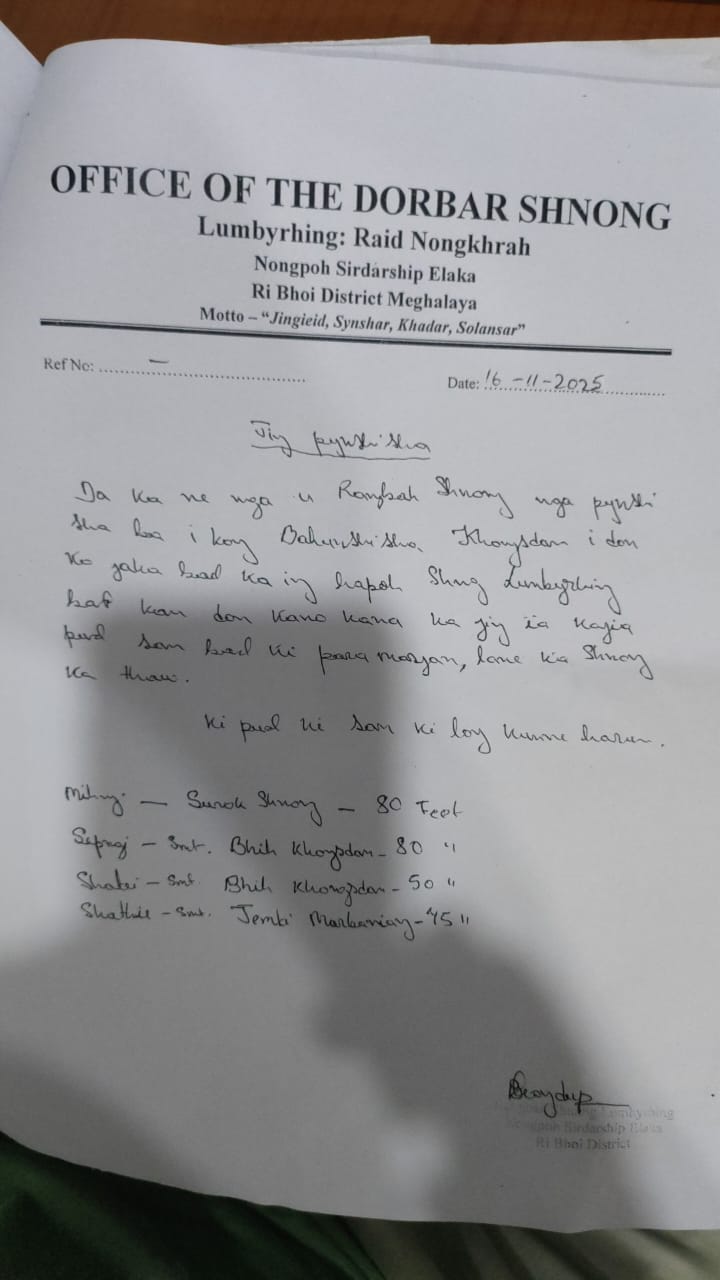 OFFICE OF THE DORBAR SHNONG
Lumbyrhing: Raid Nongkhrah
Nongpoh Sirdarship Elaka
Ri Bhoi District Meghalaya
Motto – "Jingieid, Synshar, Khadar, Solansar"
Ref No: – Date: 16-11-2025
Jing pynshisha
Da ka ne nga u Rangbah Shnong nga pynshi
sha ba i kong Khongsdam i don
ka jaka bad ka ing hapoh Shnong Lumbyrhing
kan don kano kano ka jing ia kajia
pud sam bad ki para marjan, lane ka Shnong
ka thaw.
Ki pud ki sam ki long kumne harum.
Mihngi – Surok Shnong – 80 Feet
Sepngi – Smt. Bhih Khongsdam – 80 "
Shatei – Smt. Bhih Khongsdam – 50 "
Shathie – Smt. Marbaniang – 45 "
Shnong Lumbyrhing
Nongpoh Sirdarship Elaka
Ri Bhoi District